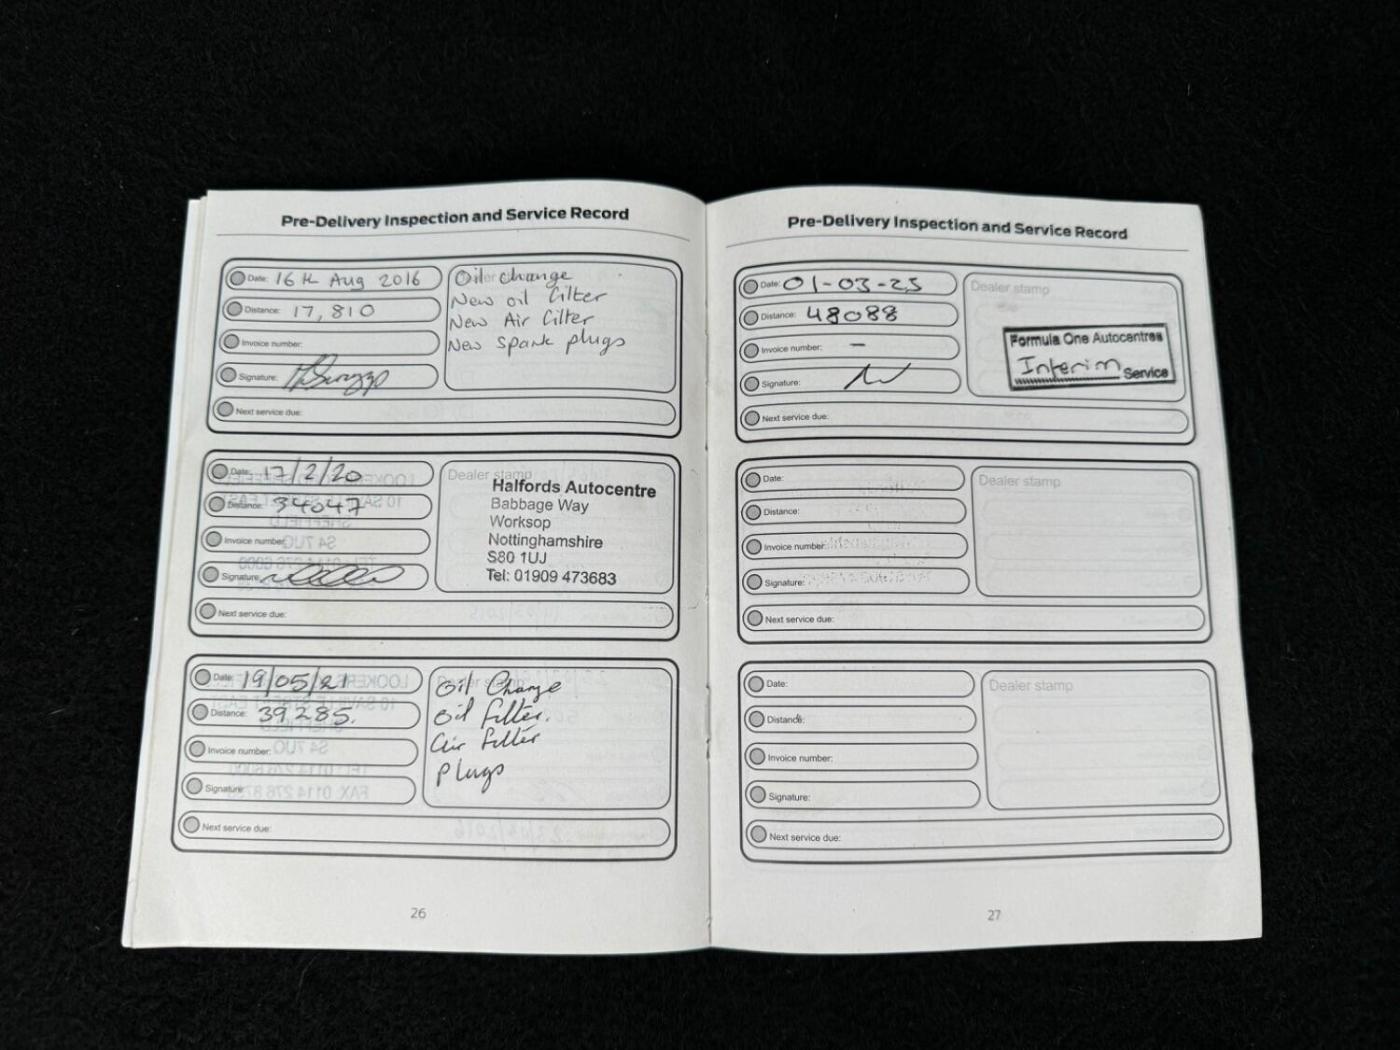 Pre-Delivery Inspection and Service Record
Date: 16th Aug 2016
Distance: 17,810
Invoice number:
Signature:
Next service due:
Oil change
New oil filter
New Air filter
New spark plugs
Date: 17/2/20
Distance: 34047
Invoice number:
Signature:
Next service due:
Dealer stamp
Halfords Autocentre
Babbage Way
Worksop
Nottinghamshire
S80 1UJ
Tel: 01909 473683
Date: 19/05/21
Distance: 39285.
Invoice number:
Signature:
Next service due:
Dealer stamp
Oil Change
Oil filter.
Air filter
Plugs
26
Pre-Delivery Inspection and Service Record
Date: 01-03-25
Distance: 48088
Invoice number: –
Signature:
Next service due:
Dealer stamp
Formula One Autocentres
Interim
Service
Date:
Distance:
Invoice number:
Signature:
Next service due:
Dealer stamp
Date:
Distance:
Invoice number:
Signature:
Next service due:
Dealer stamp
27